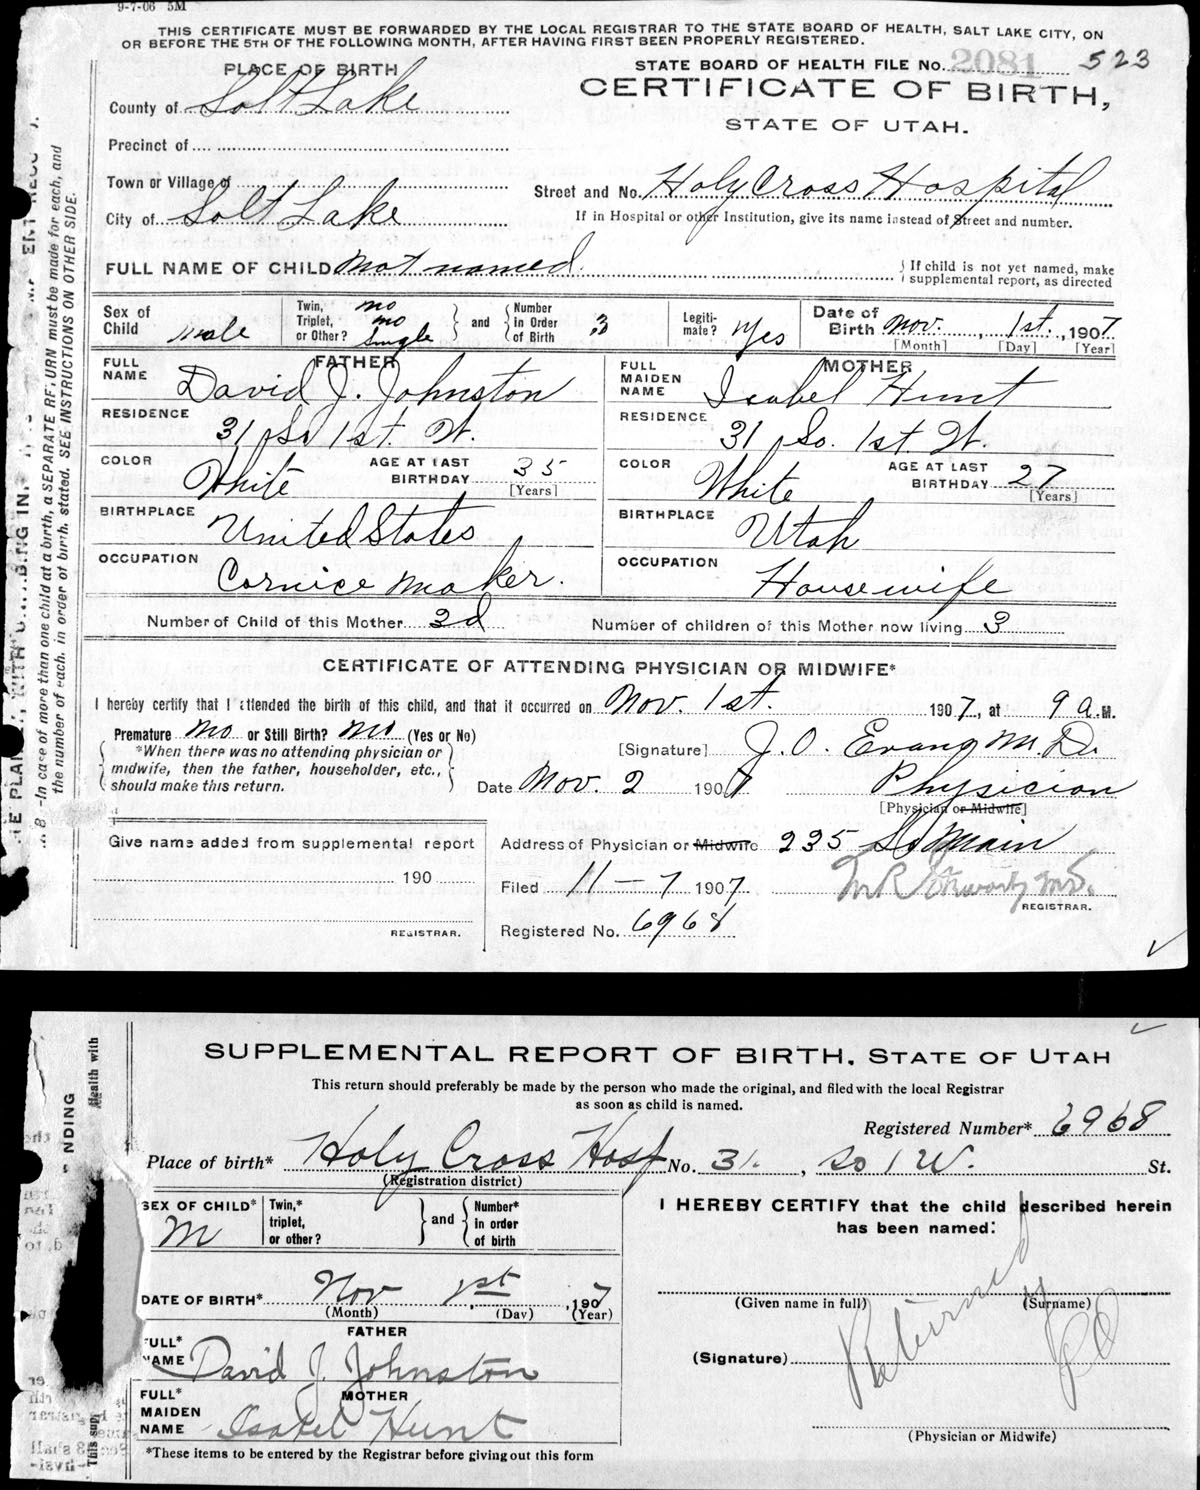 9-7-06 5M
THIS CERTIFICATE MUST BE FORWARDED BY THE LOCAL REGISTRAR TO THE STATE BOARD OF HEALTH, SALT LAKE CITY, ON
OR BEFORE THE 5TH OF THE FOLLOWING MONTH, AFTER HAVING FIRST BEEN PROPERLY REGISTERED.
PLACE OF BIRTH
STATE BOARD OF HEALTH FILE No. 2081 523
County of Salt Lake
CERTIFICATE OF BIRTH,
STATE OF UTAH.
Precinct of
Town or Village of
Street and No. Holy Cross Hospital
City of Salt Lake
If in Hospital or other Institution, give its name instead of Street and number.
FULL NAME OF CHILD Not named.
If child is not yet named, make supplemental report, as directed
Sex of Child Male
Twin, Triplet, or Other? no no Single
and
Number in Order of Birth 3
Legiti- mate? Yes
Date of Birth Nov. 1st. 1907
[Month] [Day] [Year]
FATHER
FULL NAME David J. Johnston
RESIDENCE 31 So 1st. W.
COLOR White
AGE AT LAST BIRTHDAY 35 [Years]
BIRTHPLACE United States
OCCUPATION Cornice Maker.
MOTHER
FULL MAIDEN NAME Isabel Hunt
RESIDENCE 31 So. 1st. W.
COLOR White
AGE AT LAST BIRTHDAY 27 [Years]
BIRTHPLACE Utah
OCCUPATION Housewife
Number of Child of this Mother 3d
Number of children of this Mother now living 3
CERTIFICATE OF ATTENDING PHYSICIAN OR MIDWIFE*
I hereby certify that I attended the birth of this child, and that it occurred on Nov. 1st. 1907, at 9 a.M.
Premature No or Still Birth? No (Yes or No)
*When there was no attending physician or midwife, then the father, householder, etc., should make this return.
[Signature] J. O. Evans M. D.
Date Nov. 2 1907 Physician
[Physician or Midwife]
Give name added from supplemental report
190
REGISTRAR.
Address of Physician or Midwife 235 So Main
Filed 11-7 1907
REGISTRAR.
Registered No. 6968
N. B.-In case of more than one child at a birth, a SEPARATE RETURN must be made for each, and
the number of each, in order of birth, stated. SEE INSTRUCTIONS ON OTHER SIDE.
SUPPLEMENTAL REPORT OF BIRTH, STATE OF UTAH
This return should preferably be made by the person who made the original, and filed with the local Registrar
as soon as child is named.
Registered Number* 6968
Place of birth* Holy Cross Hosp No. 31. , So 1 W. St.
(Registration district)
SEX OF CHILD* M
Twin,* triplet, or other?
and
Number* in order of birth
DATE OF BIRTH* Nov 1st, 1907
(Month) (Day) (Year)
FATHER
David J. Johnston
MOTHER
FULL* MAIDEN NAME Isabel Hunt
*These items to be entered by the Registrar before giving out this form
I HEREBY CERTIFY that the child described herein
has been named:
(Given name in full) (Surname)
(Signature)
Returned
by
PO
(Physician or Midwife)
NDING
Health with
This sup